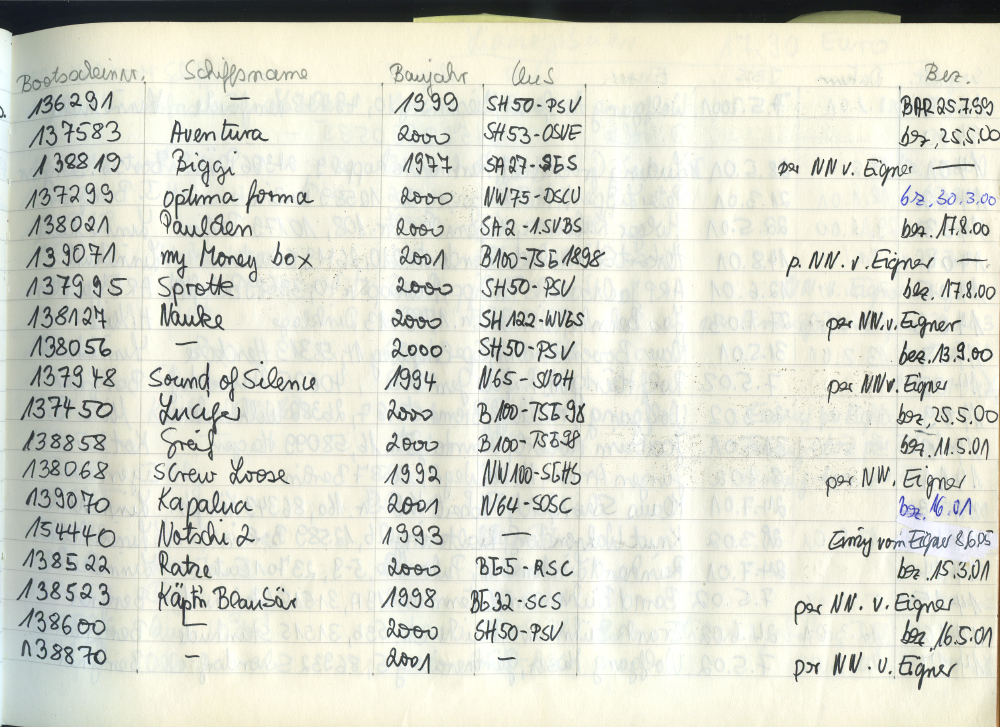 Bootsscheinnr. Schiffsname Baujahr Bez.
136291 — 1999 SH50-PSV BAR 25.7.99
137583 Aventura 2000 SH53-OSVE bez. 25.5.00
138819 Biggi 1977 per NN v. Eigner
137299 optima forma 2000 NW75-DSCU bez. 30.3.00
138021 Paulden 2000 SA2-1.SVBS bez. 17.8.00
139071 my Money box 2001 B100-TSG1898 p. NN. v. Eigner —
137995 Sprotte 2000 SH50-PSV bez. 17.8.00
138127 Nauke 2000 SH122-WVGS per NN. v. Eigner
138056 — 2000 SH50-PSV bez. 13.9.00
137948 Sound of Silence 1994 per NN v. Eigner
137450 2000 B100-TSG98 bez. 25.5.00
138858 Greif 2000 B100-TSG98 bez. 11.5.01
138068 Screw Loose 1992 NW100-SGHS per NN. Eigner
139070 Kapalua 2001 N64-SOSC bez. 16.01
154440 Notschi 2 1993 — vom Eigner 8.6.05
138522 2000 BG5-RSC bez. 15.3.01
138523 Käptn Blaubär 1998 BG32-SCS per NN. v. Eigner
138600 — 2000 SH50-PSV bez. 16.5.01
138870 — 2001 — per NN. v. Eigner